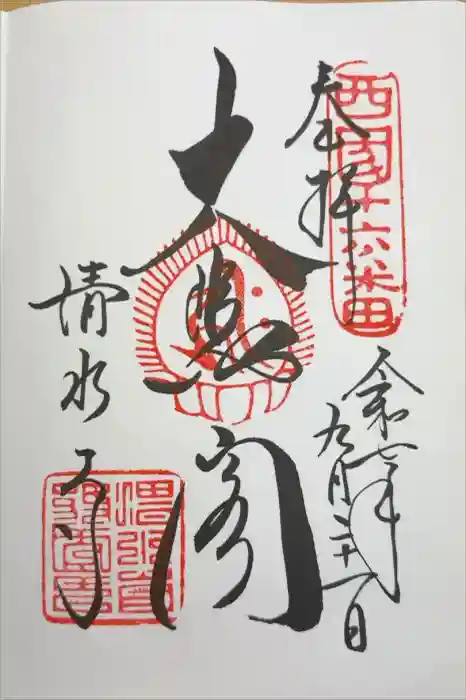 奉拝
西国十六番
令和七年
九月二十一日
大悲閣
清水寺